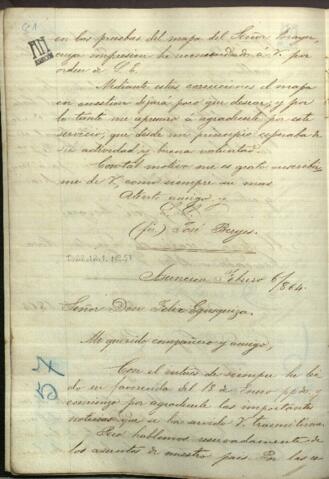 en las pruebas del mapa del Señor
cuya impresion he recomendado á V. por
orden de S. E.
Mediante estas correcciones el mapa
en cuestion dejará poco que desear, y por
lo tanto me apresuro á agradecerle por este
servicio, que desde un principio esperaba de
su actividad y buena voluntad.
Con tal motivo me es grato suscribir
me de V. como siempre su mas
Atento amigo y
S. S.
(fo) José Berges.
Asuncion Febrero 6/864.
Señor Don Felix Eguzquiza.
Mi querido compañero y amigo,
Con el interes de siempre he lei
do su estimada del 18 de Enero ppdo, y
comienzo por agradecerle las importantes
noticias que se ha servido V. trasmitirme.
Pero hablemos reservadamente de
los asuntos de nuestro pais. Por las co
57